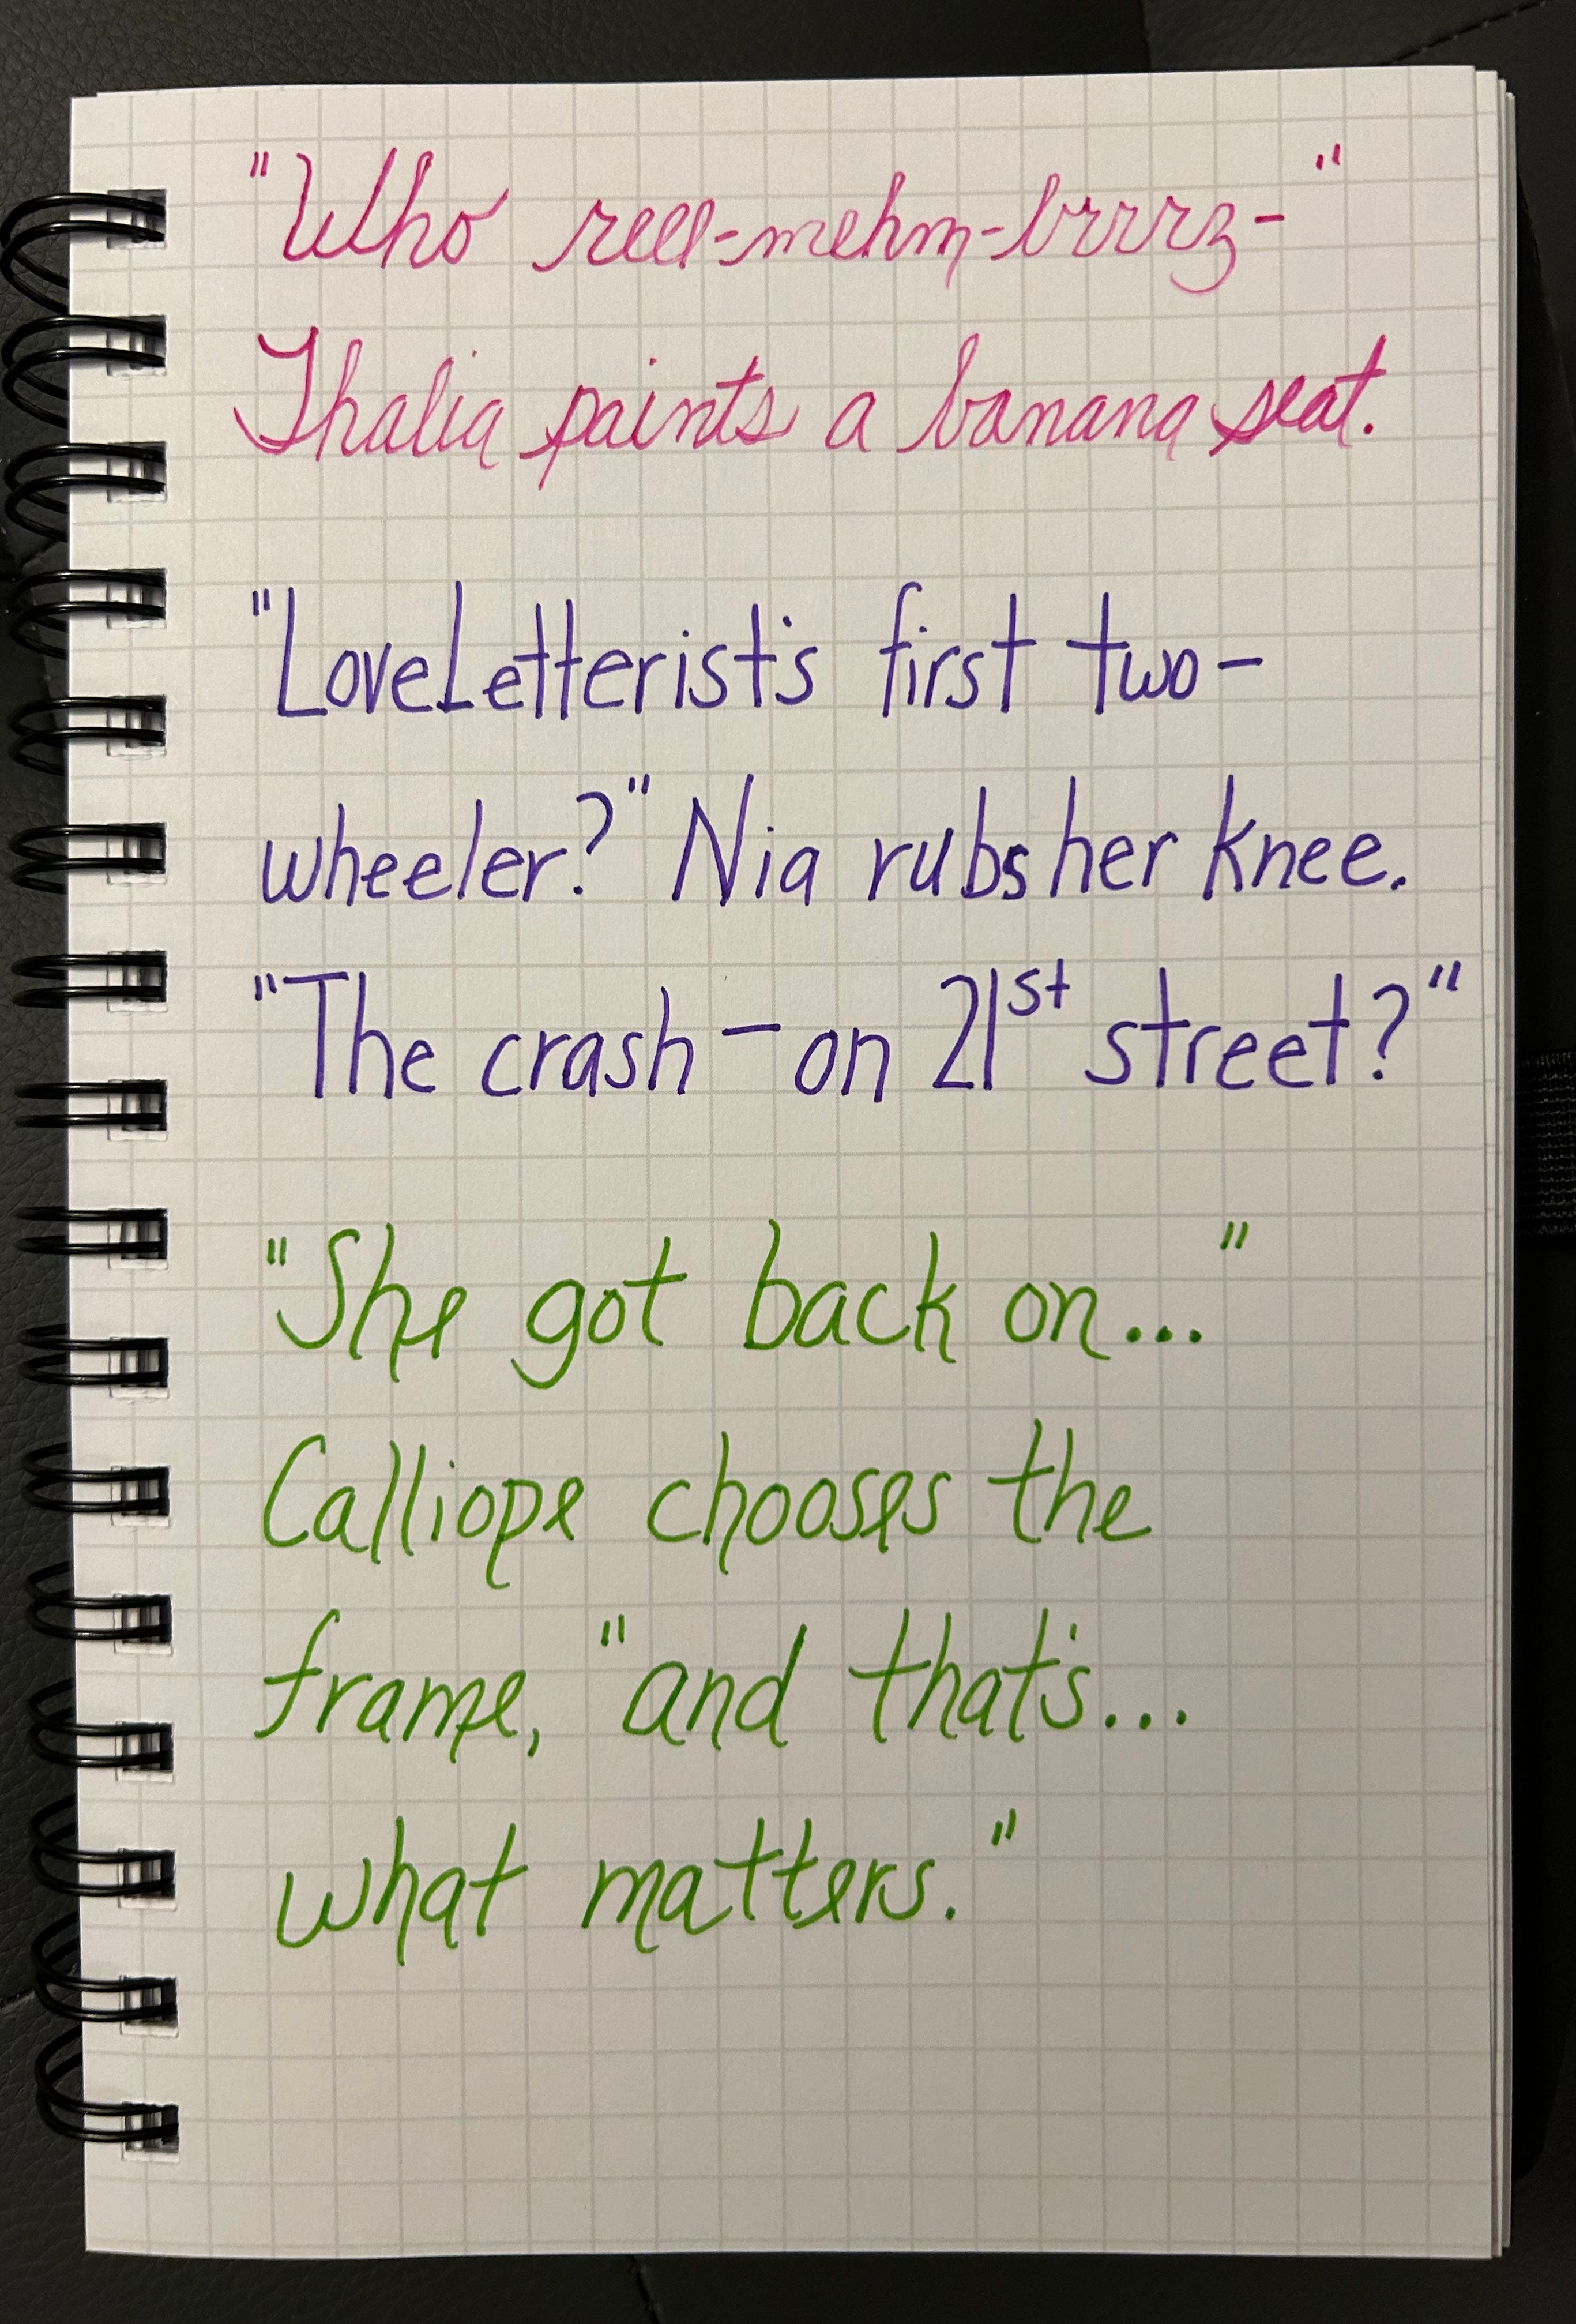 "Who reee-mehm-brrrz-"
Thalia paints a banana seat.
"LoveLetterist's first two-
wheeler?" Nia rubs her knee.
"The crash—on 21st street?"
"She got back on..."
Calliope chooses the
frame, "and that's...
what matters."